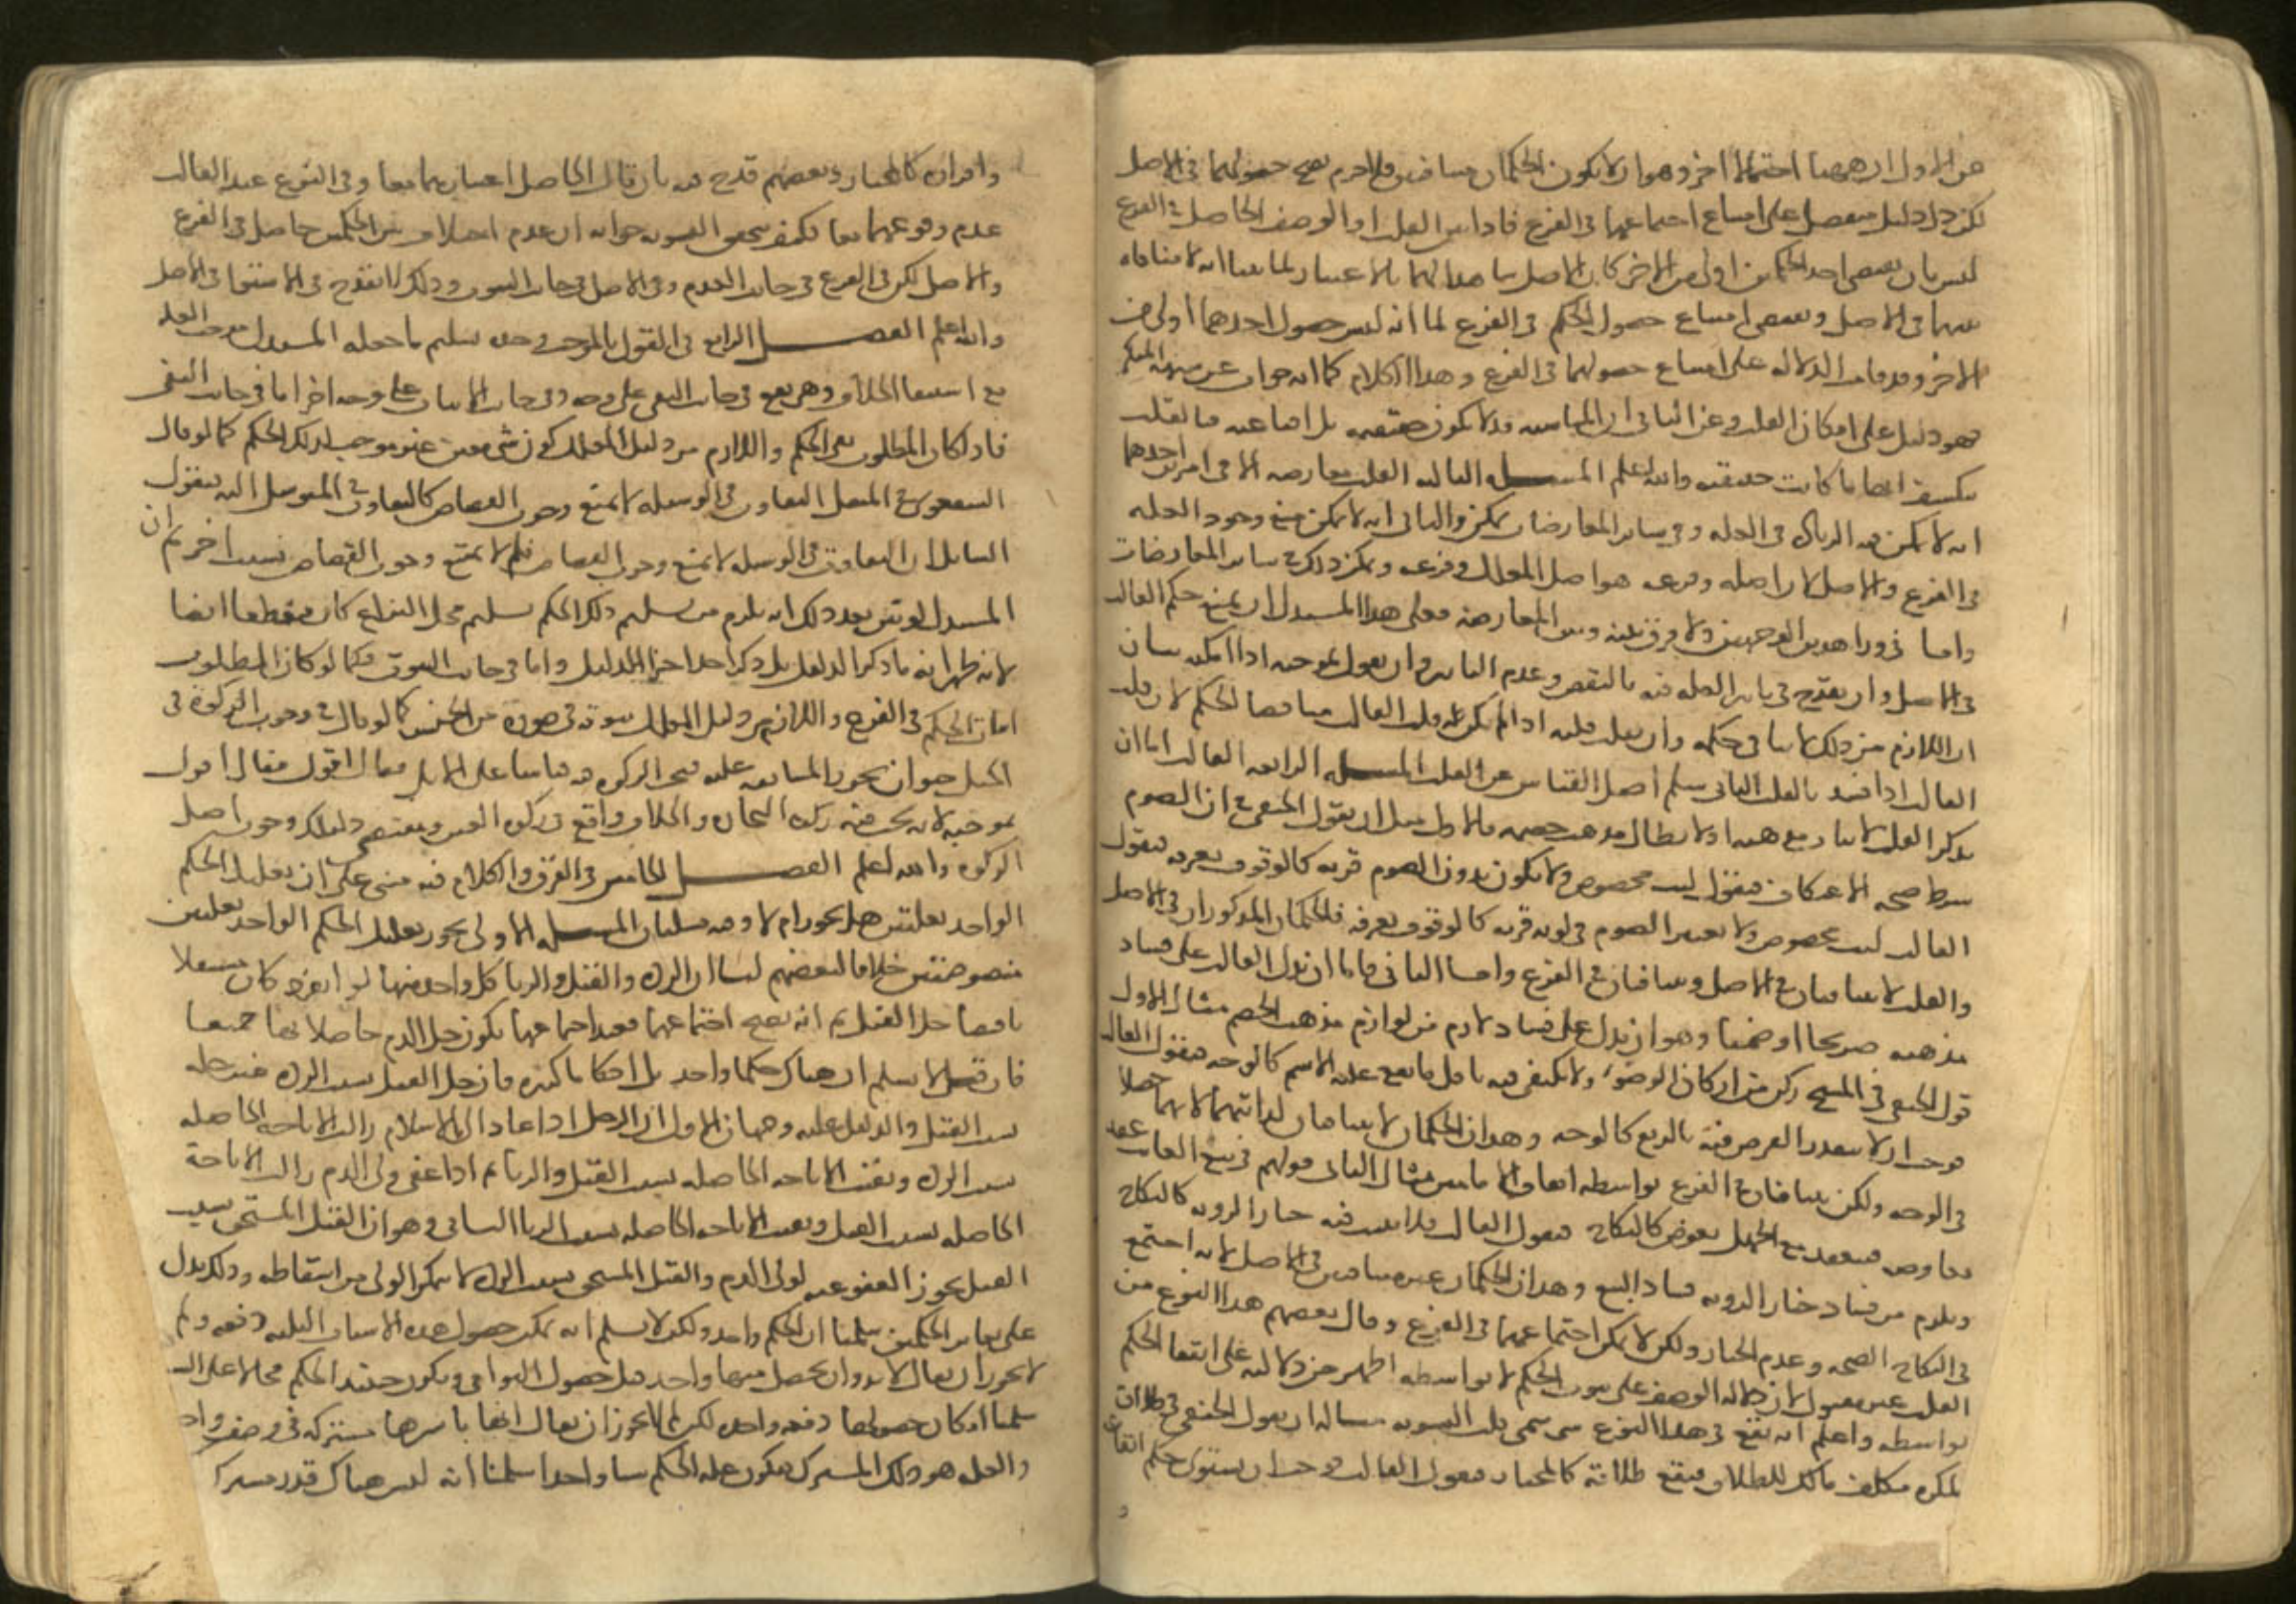 عن الاول ان ههنا احتمالا اخر وهو ان لا يكون الحكمان متنافيين فلا جرم يصح حصولهما في الاصل
لكن دل دليل منفصل على امتناع اجتماعهما في الفرع فاذا بين القلب ان الوصف الحاصل في الفرع
ليس بان يقتضي احد الحكمين اولى من الاخر كان الاصل شاهدا لهما بالاعتبار لما بينا انه لا منافاه
بينهما في الاصل ويقتضي امتناع حصول الحكم في الفرع لما انه ليس حصول احدهما اولى من
الاخر وقد قامت الدلاله على امتناع حصولهما في الفرع وهذا الكلام كما انه جواب عن شبهه المنكر
فهو دليل على امكان القلب وعن الثاني ان المناسبه قد لا تكون حقيقيه بل اقناعيه فبالقلب
ينكشف انها ما كانت حقيقيه والله اعلم المسله الثالثه القلب معارضه الا في امرين احدهما
انه لا يمكن فيه الزياده في العله وفي سائر المعارضات يمكن والثاني انه لا يمكن منع وجود العله
في الفرع والاصل لان اصله وفرعه هو اصل المعلل وفرعه ويمكن ذلك في سائر المعارضات
واما في وراء هذين الوجهين فلا فرق بينه وبين المعارضه فعلى هذا للمستدل ان يمنع حكم القالب
في الاصل وان يقدح في تاثير العله فيه بالنقض وعدم التاثير وان يقول بموجبه اذا امكنه بيان
ان اللازم من ذلك لا ينافي حكمه وان يقلب قلبه اذا لم يكن قلب القالب مناقضا للحكم لان قلب
القالب اذا فسد بالقلب الثاني سلم اصل القياس عن القلب المسله الرابعه القالب اما ان
يذكر القلب لاثبات مذهبه او لابطال مذهب خصمه فالاول مثل ان يقول الحنفي في ان الصوم
شرط صحه الاعتكاف فيقول لبث مخصوص فلا يكون بدون الصوم قربه كالوقوف بعرفه فيقول
القالب لبث مخصوص فلا يعتبر الصوم في كونه قربه كالوقوف بعرفه فالحكمان المذكوران في الاصل
والقلب لا يتنافيان في الاصل ويتنافيان في الفرع واما الثاني فاما ان يدل القالب على فساد
مذهبه صريحا او ضمنا وهو ان يدل على فساد لازم من لوازم مذهب الخصم مثال الاول
قول الحنفي في المسح ركن من اركان الوضوء فلا يكتفى فيه باقل ما يقع عليه الاسم كالوجه فيقول القالب
فوجب ان لا يتقدر الفرض فيه بالربع كالوجه وهذان الحكمان لا يتنافيان لذاتيهما لانهما حصلا
في الوجه ولكن يتنافيان في الفرع بواسطه اتفاق الامامين مثال الثاني قولهم في بيع الغائب عقد
معاوضه فينعقد مع الجهل بعوض كالنكاح فيقول القالب فلا يثبت فيه خيار الرويه كالنكاح
ويلزم من فساد خيار الرويه فساد البيع وهذان الحكمان غير متنافيين في الاصل لانه اجتمع
في النكاح الصحه وعدم الخيار ولكن لا يمكن اجتماعهما في الفرع وقال بعضهم هذا النوع من
القلب غير مقبول لان دلاله الوصف على ثبوت الحكم لا بواسطه اظهر من دلالته على انتفا الحكم
بواسطه واعلم انه يقع في هذا النوع شي سمي قلب التسويه مثاله ان يقول الحنفي في طلاق
المكره مكلف مالك للطلاق فيقع طلاقه كالمختار فيقول القالب فوجب ان يستوي حكم ايقاعه
واقراره كالمختار وبعضهم قدح فيه بان قال الحاصل اعتبارهما معا وفي الفرع عند القالب
عدم وقوعهما معا فكيف يتحقق التسويه جوابه ان عدم اختلاف بين الحكمين حاصل في الفرع
والاصل لكن في الفرع في جانب العدم وفي الاصل في جانب الثبوت وذلك لا يقدح في الاستوا في الاصل
والله اعلم الفصل الرابع في القول بالموجب وحده تسليم ما جعله المستدل موجب العله
مع استبقا الخلاف وهو يقع في جانب النفي على وجه وفي جانب الاثبات على وجه اخر اما في جانب النفي
فاذا كان المطلوب نفي الحكم واللازم من دليل المعلل كون شي معين غير موجب لذلك الحكم كما لو قال
الشفعوي في المثقل التفاوت في الوسيله لا يمنع وجوب القصاص كالتفاوت في المتوسل اليه فيقول
السائل ان التفاوت في الوسيله لا يمنع وجوب القصاص فلم لا يمتنع وجوب القصاص بسبب اخر ثم ان
المستدل لو بين بعد ذلك انه يلزم من تسليم ذلك الحكم تسليم محل النزاع كان منقطعا ايضا
لانه ظهر انه ما ذكر الدليل بل ذكر احد اجزا الدليل واما في جانب الثبوت فكما لو كان المطلوب
اثبات الحكم في الفرع واللازم من دليل المعلل ثبوته في صوره من الجنس كما لو قال في وجوب الزكوة في
الخيل حيوان تجوز المسابقه عليه فتجب الزكوه فيه قياسا على الابل فقال اقول
بموجبه لانه تجب فيه زكاه التجاره والخلاف واقع في زكوه العين ومقتضى دليلك وجوب اصل
الزكوه والله اعلم الفصل الخامس في الفرق والكلام فيه مبني على ان تعليل الحكم
الواحد بعلتين هل يجوز ام لا وفيه مسلتان المسله الاولى يجوز تعليل الحكم الواحد بعلتين
منصوصتين خلافا لبعضهم لنا ان الرده والقتل والزنا كل واحد منها لو انفرد كان مستقلا
باقتضا حل القتل ثم انه يصح اجتماعها فعند اجتماعها يكون حل الدم حاصلا بها جميعا
فان قيل لا نسلم ان هناك حكما واحدا بل احكاما كثيره فان حل القتل بسبب الرده غير حله
بسبب القتل والدليل عليه وجهان الاول ان الرجل اذا عاد الى الاسلام زالت الاباحه الحاصله
بسبب الرده وبقيت الاباحه الحاصله بسبب القتل والزنا ثم اذا عفى ولي الدم زالت الاباحة
الحاصله بسبب القتل وبقيت الاباحه الحاصله بسبب الزنا الثاني وهو ان القتل المستحق بسبب
القتل يجوز العفو عنه لولي الدم والقتل المستحق بسبب الرده لا يتمكن الولي من اسقاطه وذلك يدل
على تغاير الحكمين سلمنا ان الحكم واحد ولكن لا نسلم انه يمكن حصول هذه الاسباب الثلثه دفعه ولم
لا يجوز ان يقال لا بد وان يحصل منها واحد قبل حصول البواقي ويكون حينئذ الحكم محالا على السابق
سلمنا امكان حصولها دفعه واحده لكن لم لا يجوز ان يقال انها باسرها مشتركه في وصف واحد
والعله هو ذلك المشترك فيكون عله الحكم شيا واحدا سلمنا انه ليس هناك قدر مشترك